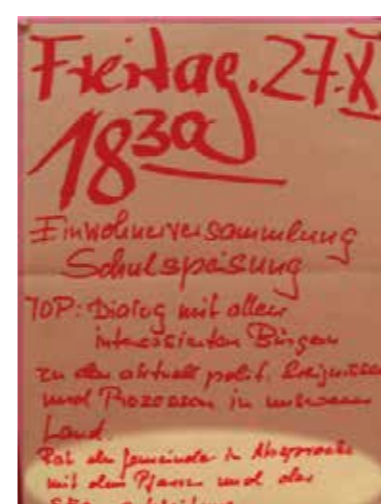 Freitag. 27.X
18 30
Einwohnerversammlung
Schulspeisung
TOP: Dialog mit allen
interessierten Bürgern
zu den aktuell polit. Ereignissen
und Prozessen in unserem
Land.
Rat der Gemeinde in Absprache
mit dem Pfarrer und der